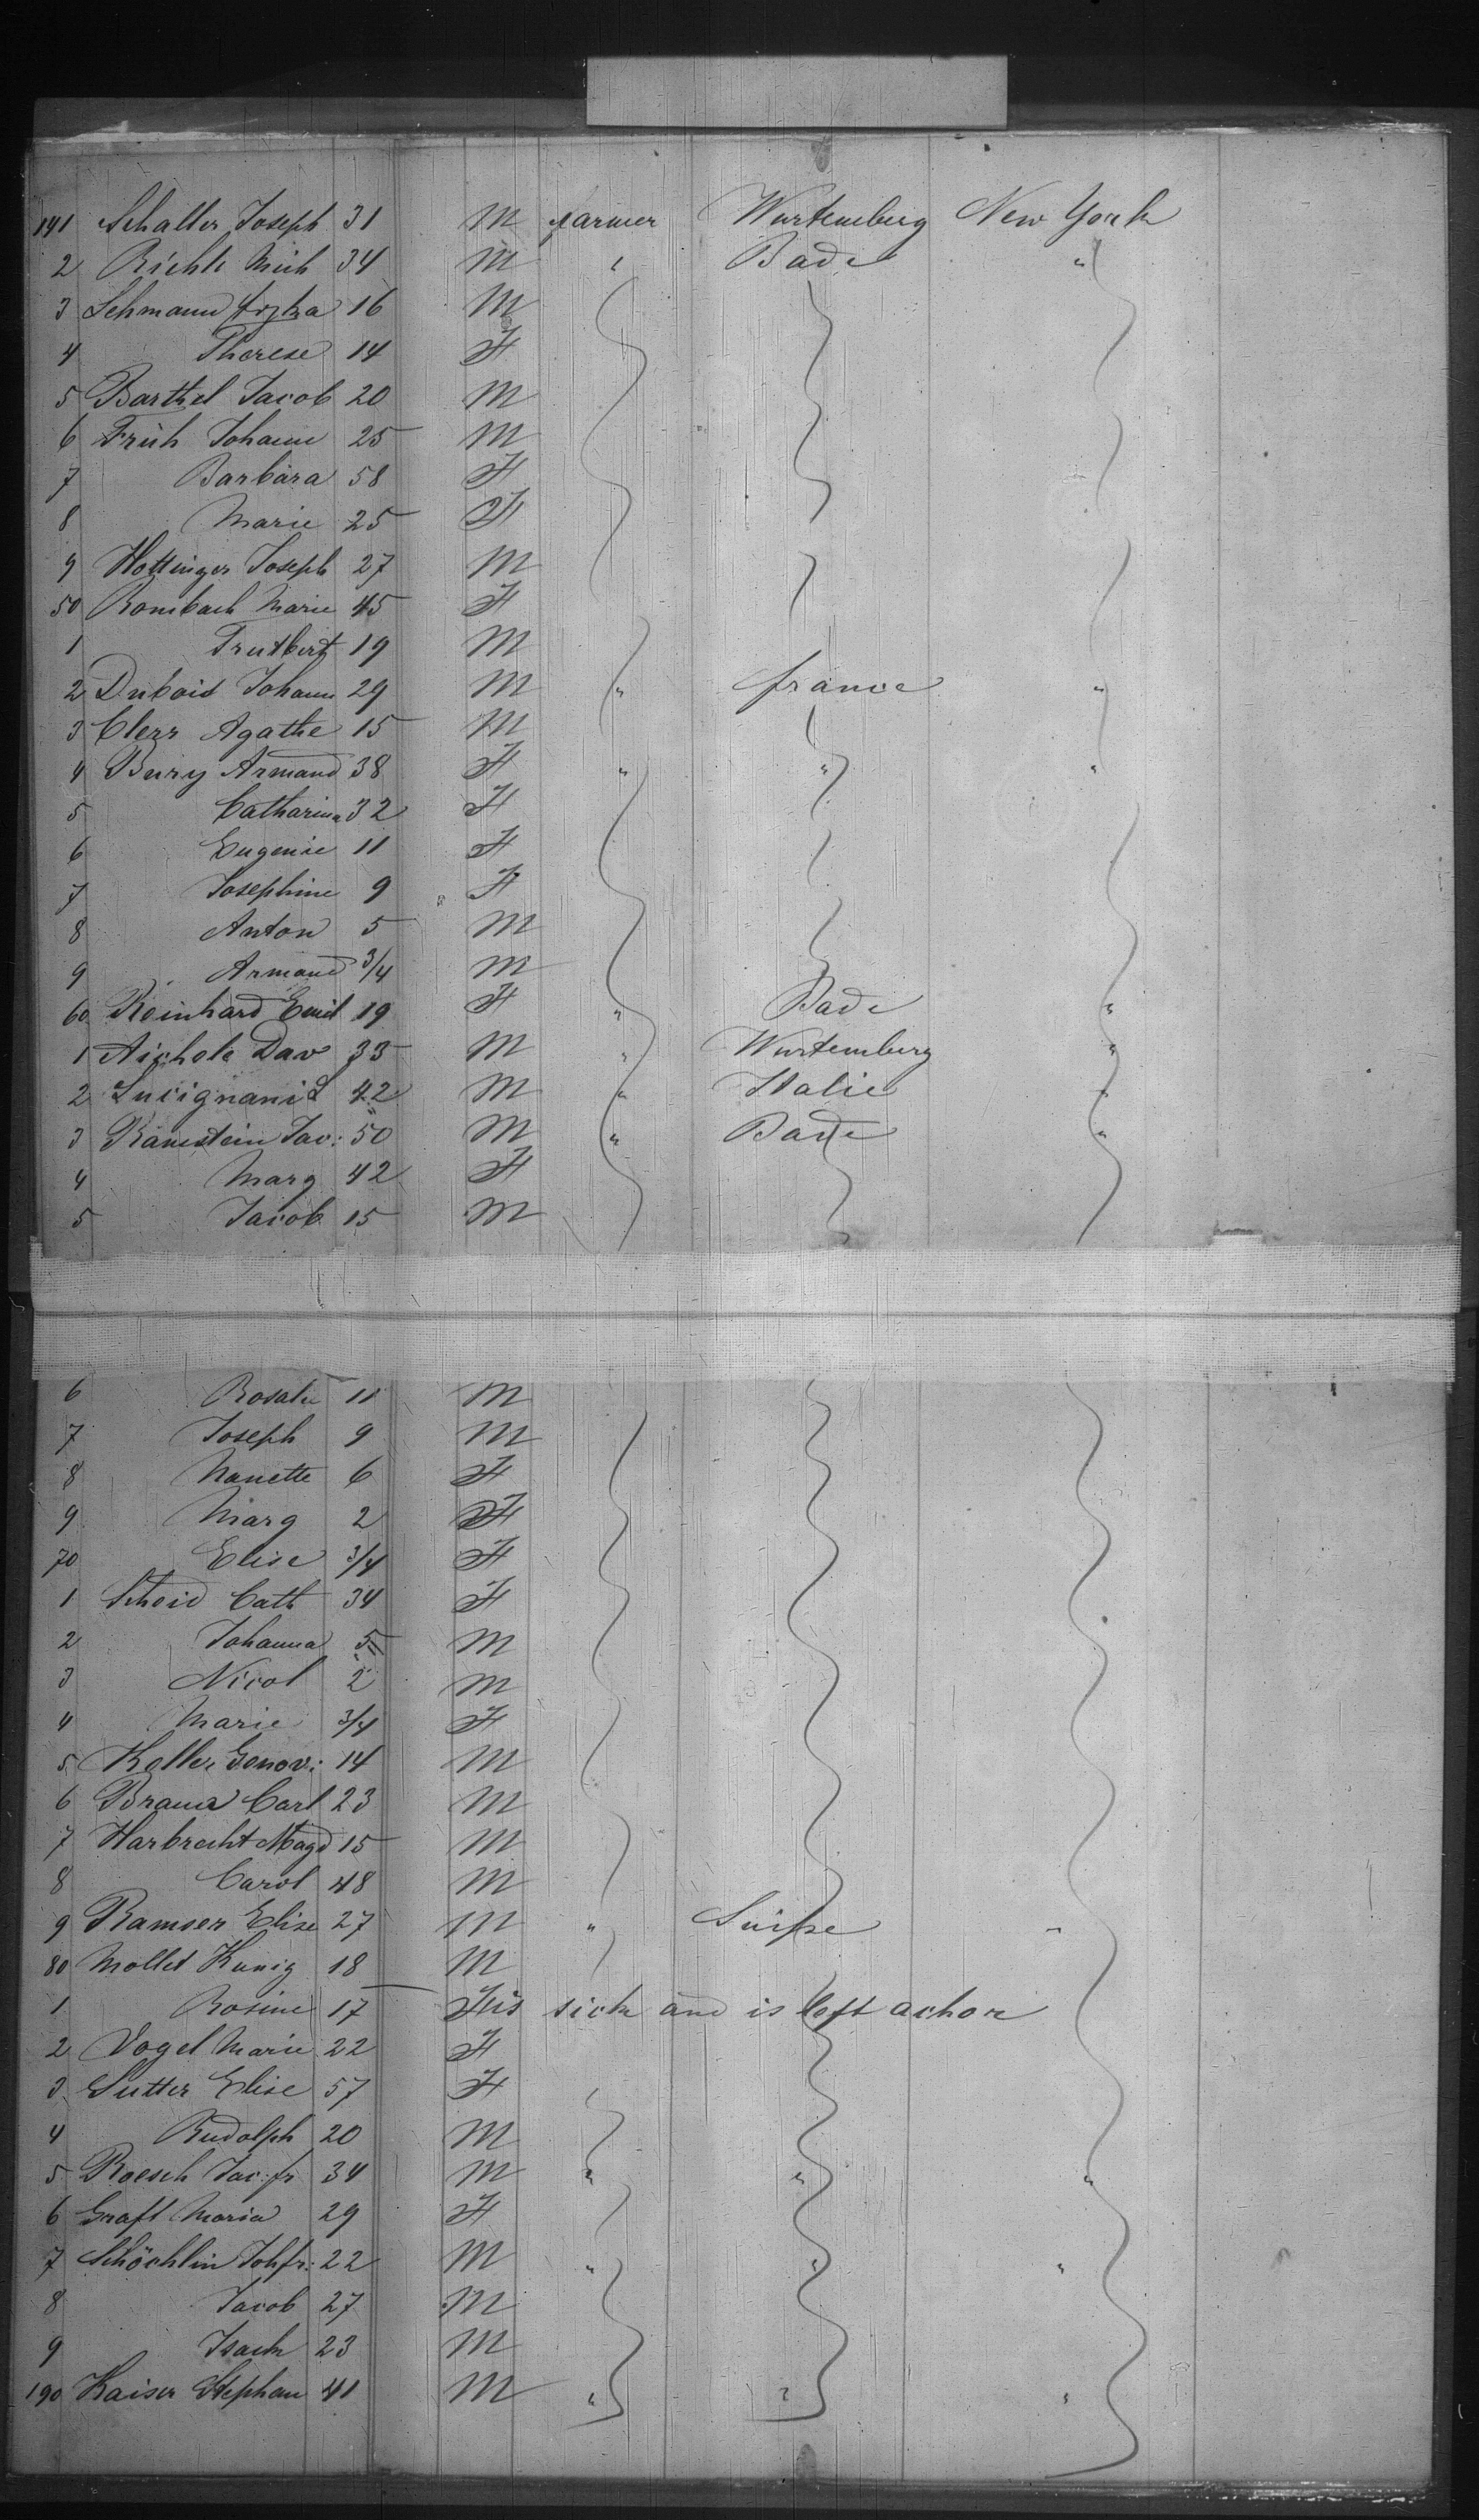 141 Schaller Joseph 31 M farmer Wurtemberg New York
2 Richle Mich 34 M " Bade "
3 Lehmann 16 M
4 Therese 14 F
5 Barthel Jacob 20 M
6 Früh Johann 25 M
7 Barbara 58 F
8 Marie 25 F
9 Hottinger Joseph 27 M
50 Rombach Marie 45 F
1 Trutbert 19 M
2 Dubois Johann 29 M " france "
3 Clerr Agathe 15 M
4 Bury Armand 38 F " " "
5 Catharina 32 F
6 Eugenie 11 F
7 Josephine 9 F
8 Anton 5 M
9 Armand 3/4 M
60 Reinhard Emil 19 F " Bade "
1 Aichele Dav 33 M " Wurtemberg "
2 Lucignani L 42 M " Italie "
3 Ramstein Jac: 50 M " Bade "
4 Marg 42 F
5 Jacob 15 M
6 Rosalie 11 M
7 Joseph 9 M
8 Nanette 6 F
9 Marg 2 F
70 Elise 3/4 F
1 Scheid Cath 34 F
2 Johanna 5 M
3 Nicol 2 M
4 Marie 3/4 F
5 Keller Genov: 14 M
6 Braun Carl 23 M
7 Harbrecht Magd 15 M
8 Carol 48 M
9 Ramser Elise 27 M " Suisse "
80 Mollet Kunig 18 M
1 Rosine 17 F is sick and is left achor
2 Vogel Marie 22 F
3 Sutter Elise 57 F
4 Rudolph 20 M
5 Roesch Jac: fr 34 M " " "
6 Graft Maria 29 F
7 Schöchlin Joh fr: 22 M " " "
8 Jacob 27 M
9 Isach 23 M
190 Kaiser Stephan 41 M " " "